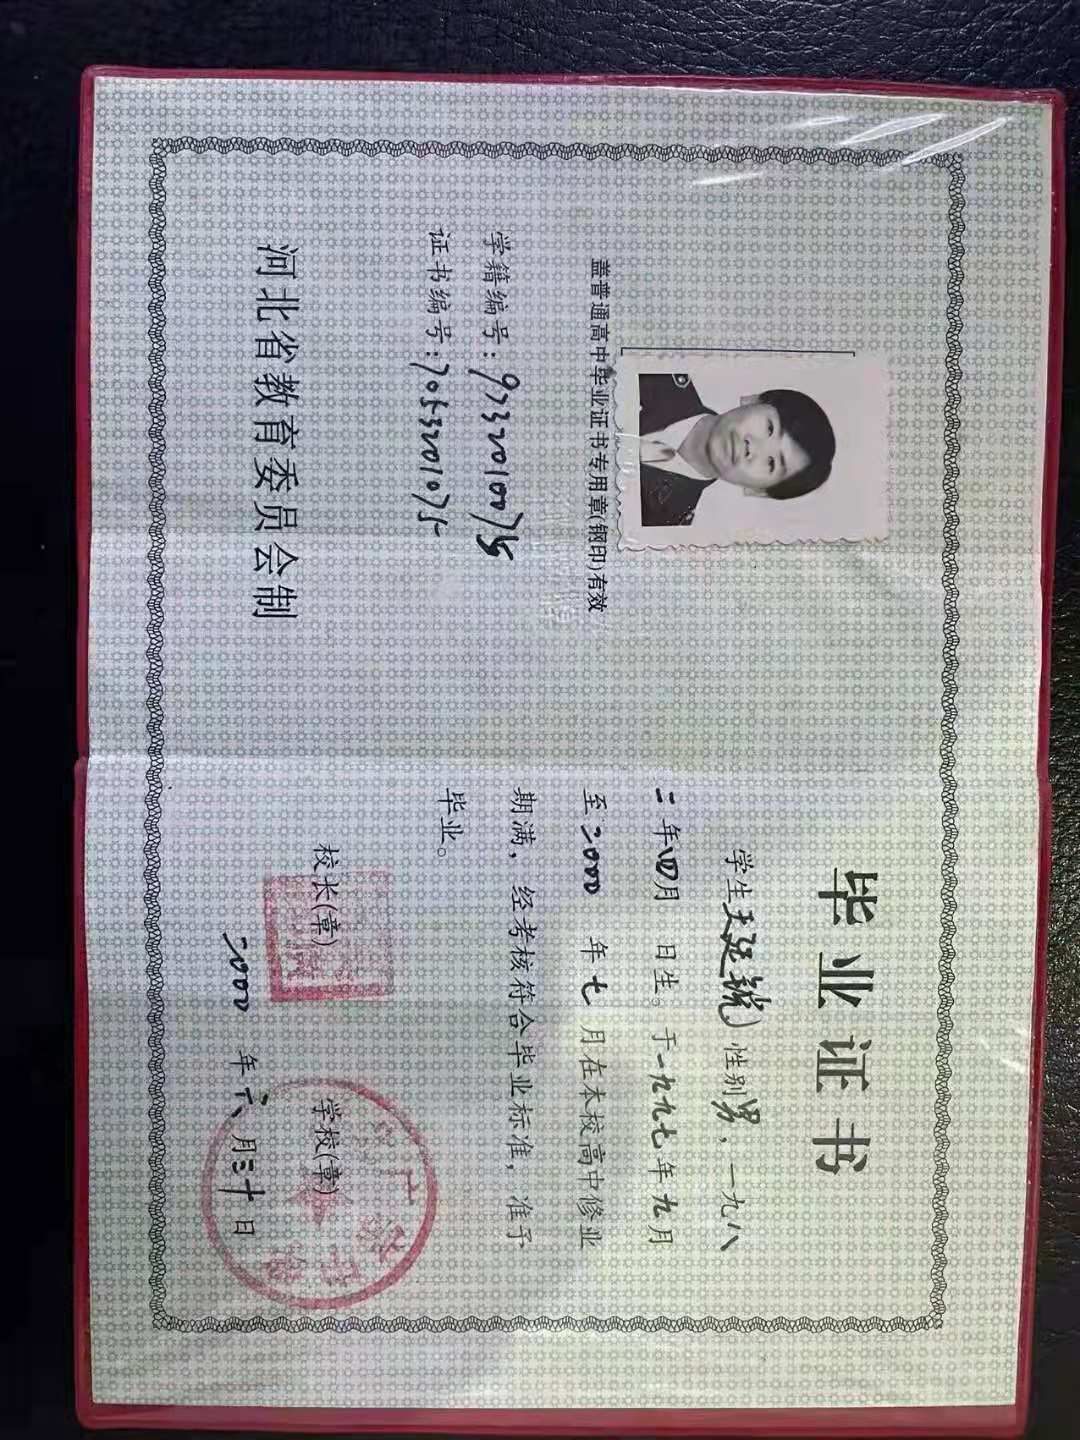 盖普通高中毕业证书专用章(钢印)有效
学籍编号：9732010075
证书编号：7053201075
河北省教育委员会制
毕业证书
学生王延锐性别男，一九八
二年四月 日生。于一九九七年九月
至二000年七月在本校高中修业
期满，经考核符合毕业标准，准予
毕业。
校长(章) 学校(章)
二000年六月三十日